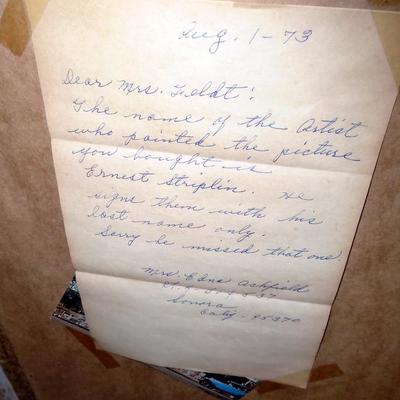 Aug. 1-73
Dear Mrs.
The name of the artist
who painted the picture
you bought is
Ernest Striplin. He
signs them with his
last name only.
Sorry he missed that one.
Mrs. Edna Ashfield
Sonora
Calif. 95370